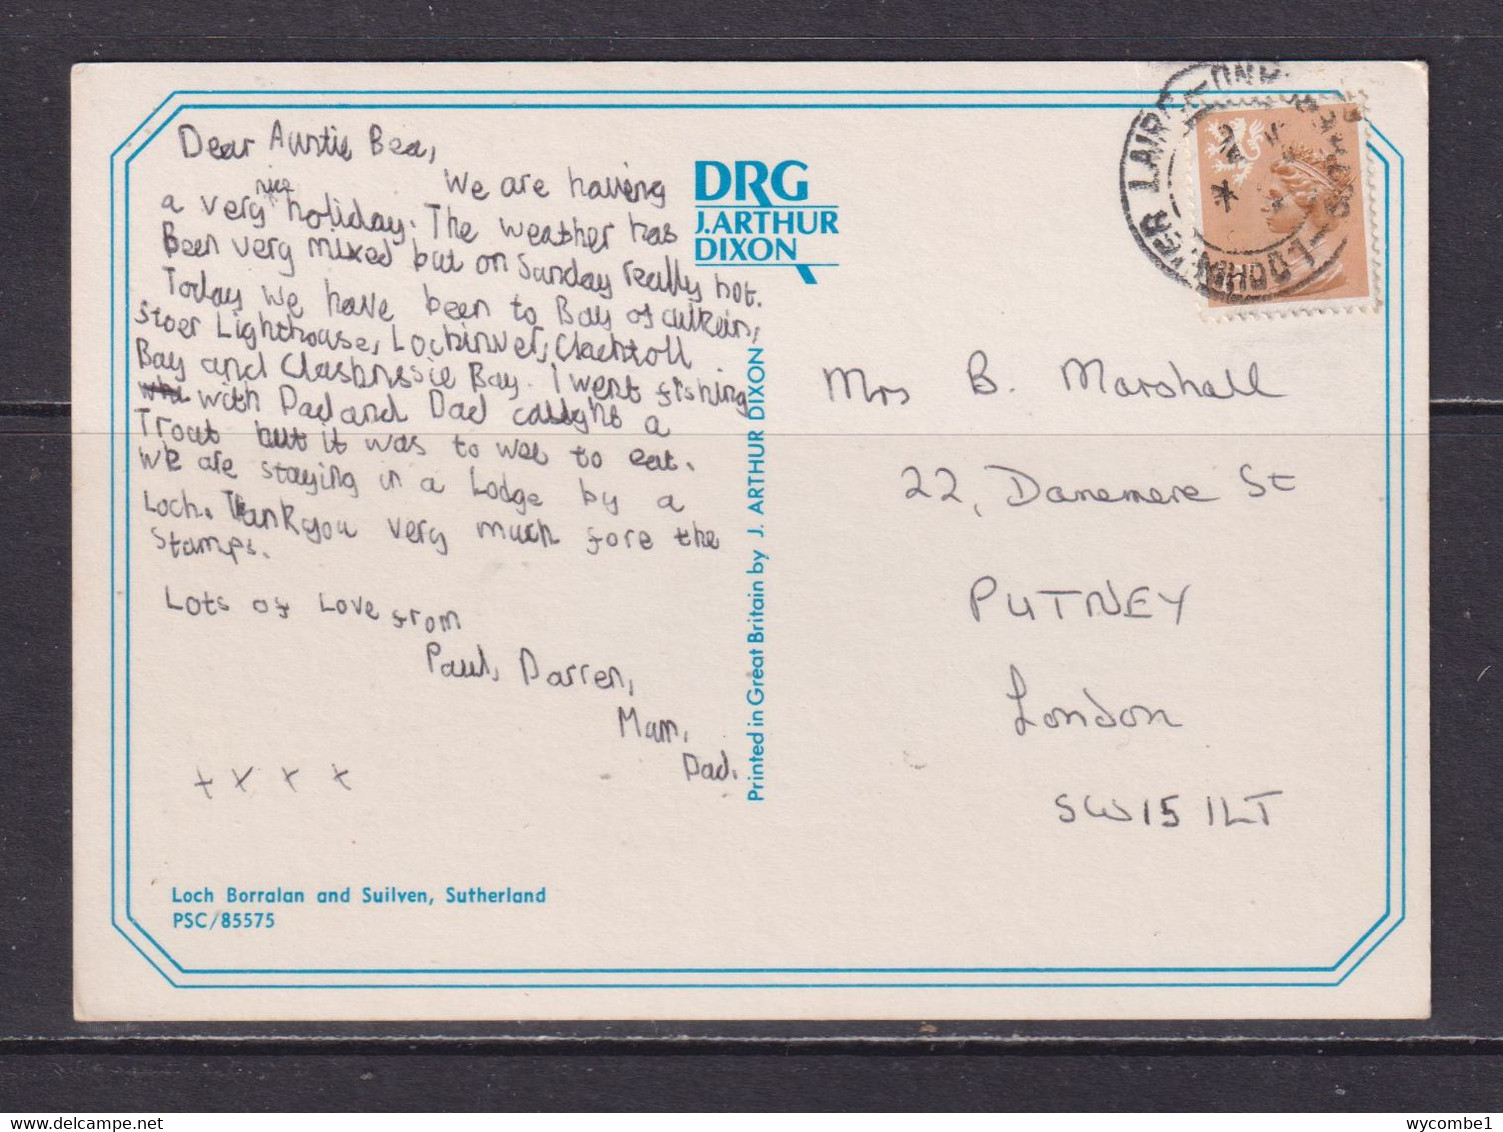 Dear Auntie Bea,
We are having
a very nice holiday. The weather has
Been very mixed but on Sunday really hot.
Today we have been to Bay of culkein,
stoer Lighthouse, Lochinver, Clachtoll
Bay and Clashnessie Bay. I went fishing
with Dad and Dad caught a
Trout but it was to wee to eat.
We are staying in a Lodge by a
Loch. Thank you very much fore the
Stamps.
Lots of Love from
Paul, Darren,
Mam,
Dad.
x x x x
Loch Borralan and Suilven, Sutherland
PSC/85575
DRG
J.ARTHUR
DIXON
Printed in Great Britain by J. ARTHUR DIXON
LOCHINVER LAIRG
Mrs B. Marshall
22, Danemere St
PUTNEY
London
SW15 1LT
wycombe1